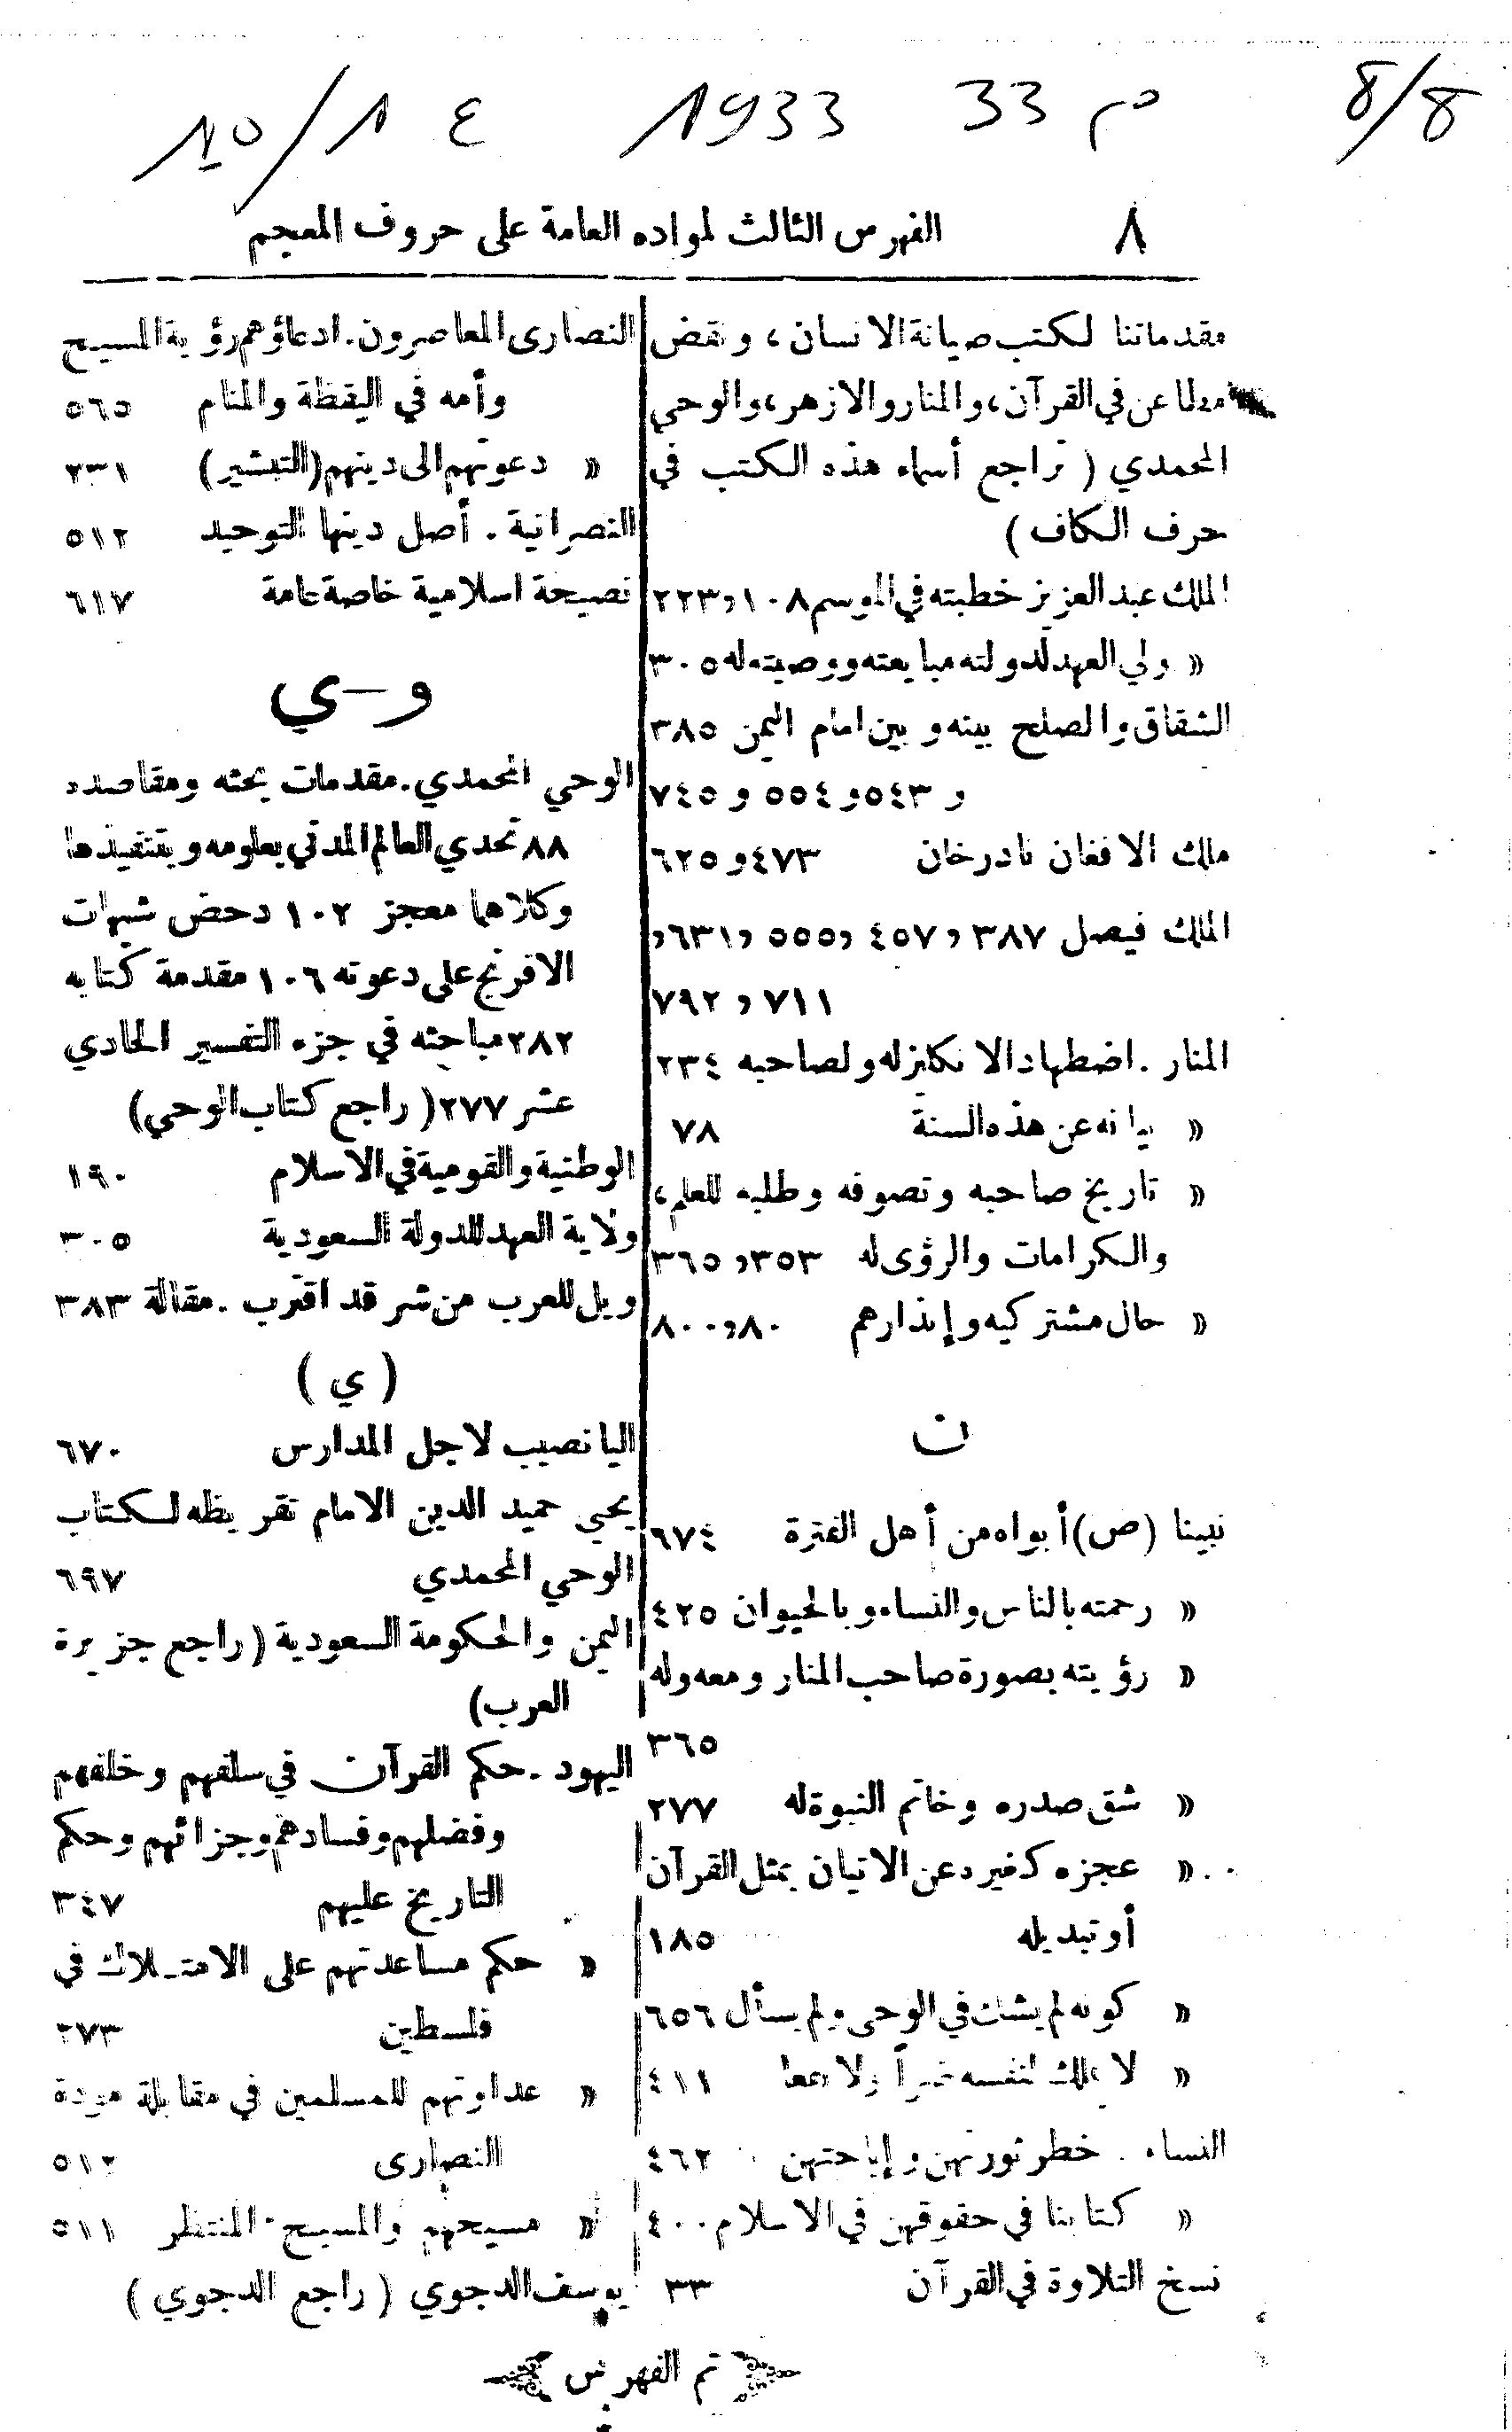 8/8
م 33
1933
ع 1/10
٨
الفهرس الثالث لمواده العامة على حروف المعجم
مقدماتنا لكتب صيانة الانسان، ونقض
مطاعن في القرآن، والمنار والازهر، والوحي
المحمدي ( تراجع أسماء هذه الكتب في
حرف الكاف)
الملك عبد العزيز خطبته في الموسم ١٠٨و٢٢٣
« ولي العهد لدولته مبايعته ووصيته له ٣٠٥
الشقاق والصلح بينه وبين امام اليمن ٣٨٥
و ٥٤٣و ٥٥٤ و ٧٤٥
ملك الافغان نادرخان ٤٧٣و ٦٢٥
الملك فيصل ٣٨٧ و ٤٥٧ و٥٥٥ و٦٣١و
٧١١ و ٧٩٢
المنار . اضطهاد الانكليز له ولصاحبه ٢٣٤
« بيانه عن هذه السنة ٧٨
« تاريخ صاحبه وتصوفه وطلبه للعلم،
والكرامات والرؤى له ٣٥٣و ٣٦٥
« حال مشتركيه وإنذارهم ٨٠و٨٠٠
ن
نبينا (ص) أبواه من أهل الفترة ٦٧٤
« رحمته بالناس والنساء وبالحيوان ٤٢٥
« رؤيته بصورة صاحب المنار ومعه وله
٣٦٥
« شق صدره وخاتم النبوة له ٢٧٧
« عجزه كغيره عن الاتيان بمثل القرآن
أو تبديله ١٨٥
« كونه لم يشك في الوحي ولم يسأل ٦٥٦
« لا يملك لنفسه ولا ٤١١
النساء . خطر ثورتهن وإباحتهن ٤٦٢
« كتابنا في حقوقهن في الاسلام ٤٠٠
نسخ التلاوة في القرآن ٣٣
النصارى المعاصرون. ادعاؤهم رؤية المسيح
وأمه في اليقظة والمنام ٥٦٥
« دعوتهم الى دينهم (التبشير) ٢٣١
النصرانية . أصل دينها التوحيد ٥١٢
نصيحة اسلامية خاصة عامة ٦١٧
و-ي
الوحي المحمدي. مقدمات بحثه ومقاصده
٨٨ تحدي العالم المدني بعلومه وبتنفيذها
وكلاهما معجز ١٠٢ دحض شبهات
الافرنج على دعوته ١٠٦ مقدمة كتابه
٢٨٢ مباحثه في جزء التفسير الحادي
عشر ٢٧٧ ( راجع كتاب الوحي)
الوطنية والقومية في الاسلام ١٩٠
ولاية العهد للدولة السعودية ٣٠٥
ويل للعرب من شر قد اقترب . مقالة ٣٨٣
( ي )
اليانصيب لاجل المدارس ٦٧٠
يحيى حميد الدين الامام تقريظه لكتاب
الوحي المحمدي ٦٩٧
اليمن والحكومة السعودية (راجع جزيرة
العرب)
اليهود . حكم القرآن في سلفهم وخلفهم
وفضلهم وفسادهم وجزائهم وحكم
التاريخ عليهم ٣٤٧
« حكم مساعدتهم على الامتلاك في
فلسطين ٢٧٣
« عداوتهم للمسلمين في مقابلة مودة
النصارى ٥١٢
« مسيحهم والمسيح المنتظر ٥١١
يوسف الدجوي ( راجع الدجوي )
تم الفهرس